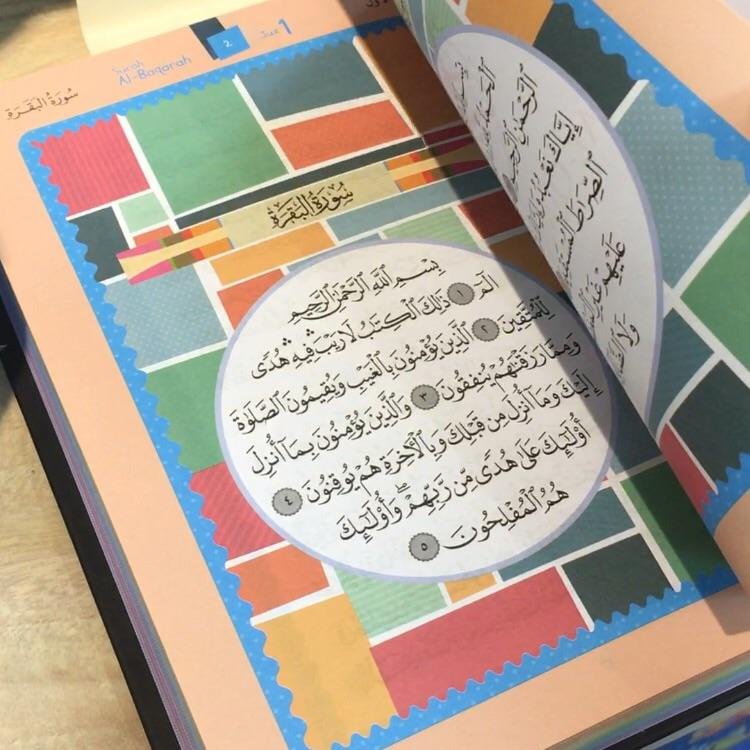 Surah
Al-Baqarah
2
Juz 1
سُورَةُ البَقَرَةِ
سُورَةُ البَقَرَةِ
بِسْمِ ٱللَّهِ ٱلرَّحْمَٰنِ ٱلرَّحِيمِ
الٓمٓ ١ ذَٰلِكَ ٱلْكِتَٰبُ لَا رَيْبَ ۛ فِيهِ ۛ هُدًى
لِّلْمُتَّقِينَ ٢ ٱلَّذِينَ يُؤْمِنُونَ بِٱلْغَيْبِ وَيُقِيمُونَ ٱلصَّلَوٰةَ
وَمِمَّا رَزَقْنَٰهُمْ يُنفِقُونَ ٣ وَٱلَّذِينَ يُؤْمِنُونَ بِمَآ أُنزِلَ
إِلَيْكَ وَمَآ أُنزِلَ مِن قَبْلِكَ وَبِٱلْءَاخِرَةِ هُمْ يُوقِنُونَ ٤
أُو۟لَٰٓئِكَ عَلَىٰ هُدًى مِّن رَّبِّهِمْ ۖ وَأُو۟لَٰٓئِكَ
هُمُ ٱلْمُفْلِحُونَ ٥
ٱلرَّحْمَٰنِ
إِيَّاكَ نَعْبُدُ
ٱلصِّرَٰطَ
عَلَيْهِمْ غَيْرِ
وَلَا